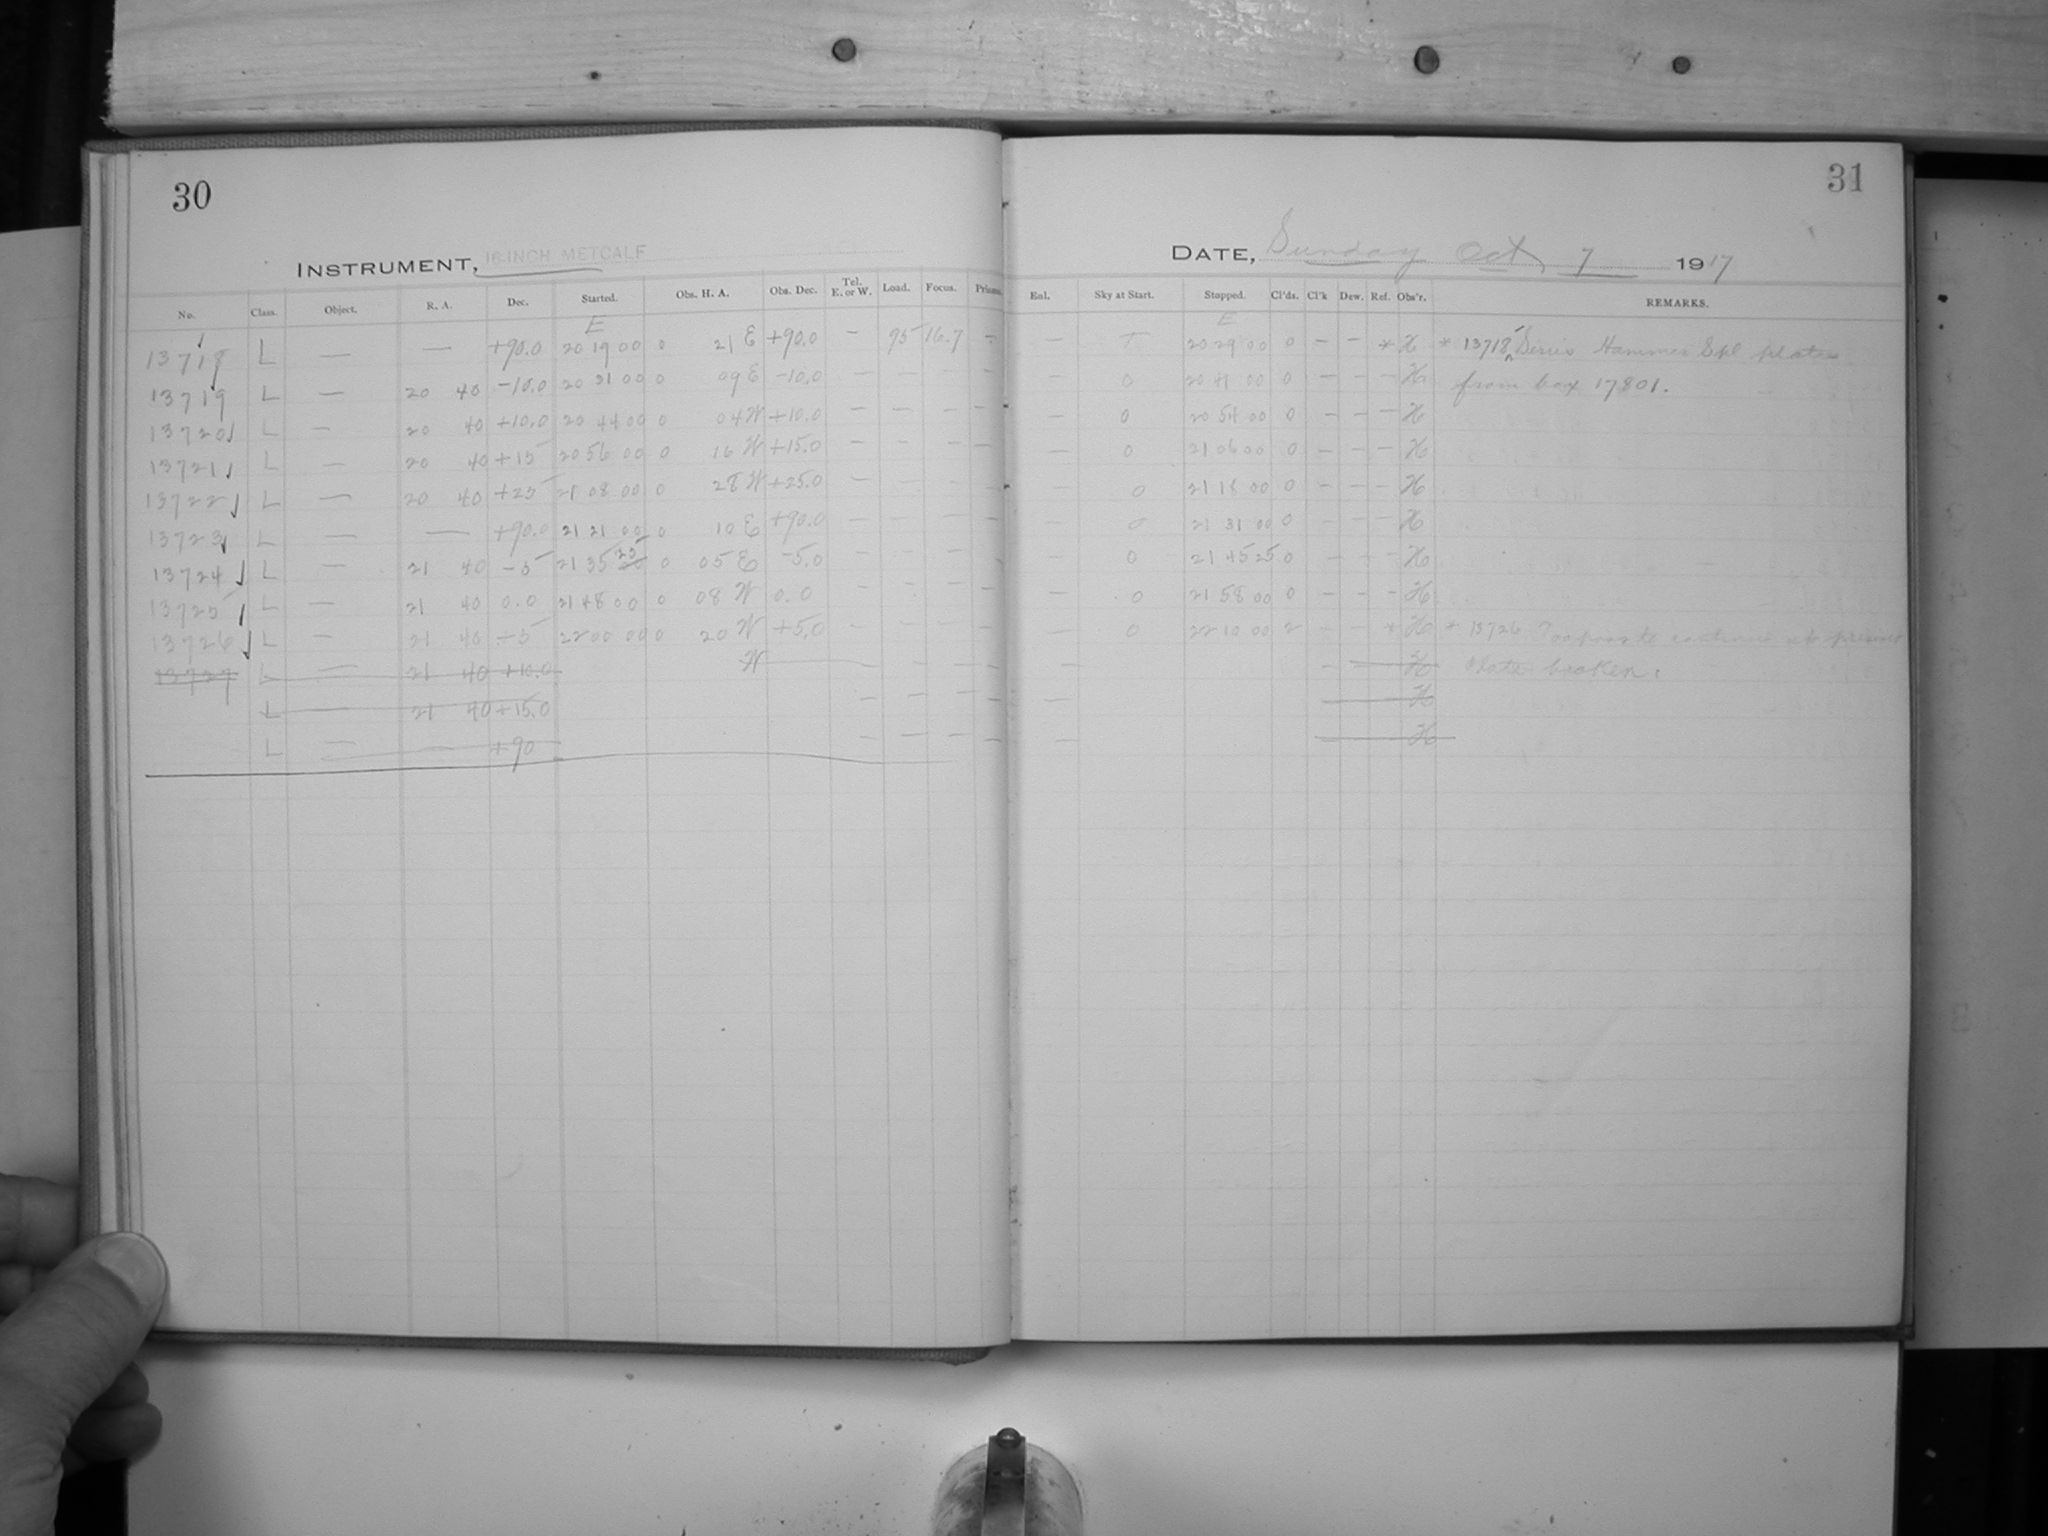 30
31
INSTRUMENT, 16-INCH METCALF
DATE, Sunday Oct. 7 1917
No. Class. Object. R. A. Dec. Started. Obs. H. A. Obs. Dec. Tel. E. or W. Load. Focus. Prisms. Enl. Sky at Start. Stopped. Cl'ds. Cl'k Dew. Ref. Obs'r. REMARKS.
E E
13718 L — — +90.0 20 19 00 0 21 E +90.0 — 95 16.7 — — T 20 29 00 0 — — * H * 13718 Series Hammer Spl plates
13719 L — 20 40 -10.0 20 31 00 0 09 E -10.0 — — — — — 0 20 41 00 0 — — — H from box 17801.
13720 L — 20 40 +10.0 20 44 00 0 04 W +10.0 — — — — — 0 20 54 00 0 — — — H
13721 L — 20 40 +15 20 56 00 0 16 W +15.0 — — — — — 0 21 06 00 0 — — — H
13722 L — 20 40 +25 21 08 00 0 28 W +25.0 — — — — — 0 21 18 00 0 — — — H
13723 L — — +90.0 21 21 00 0 10 E +90.0 — — — — — 0 21 31 00 0 — — — H
13724 L — 21 40 -5 21 35 25 0 05 E -5.0 — — — — — 0 21 45 25 0 — — — H
13725 L — 21 40 0.0 21 48 00 0 08 W 0.0 — — — — — 0 21 58 00 0 — — — H
13726 L — 21 40 +5 22 00 00 0 20 W +5.0 — — — — — 0 22 10 00 2 — — * H * 13726 Too poor to continue at present
13727 L — 21 40 +10.0 W — — — — — — H Plate broken.
L — 21 40 +15.0 — — — — — H
L — — +90 — — — — — H